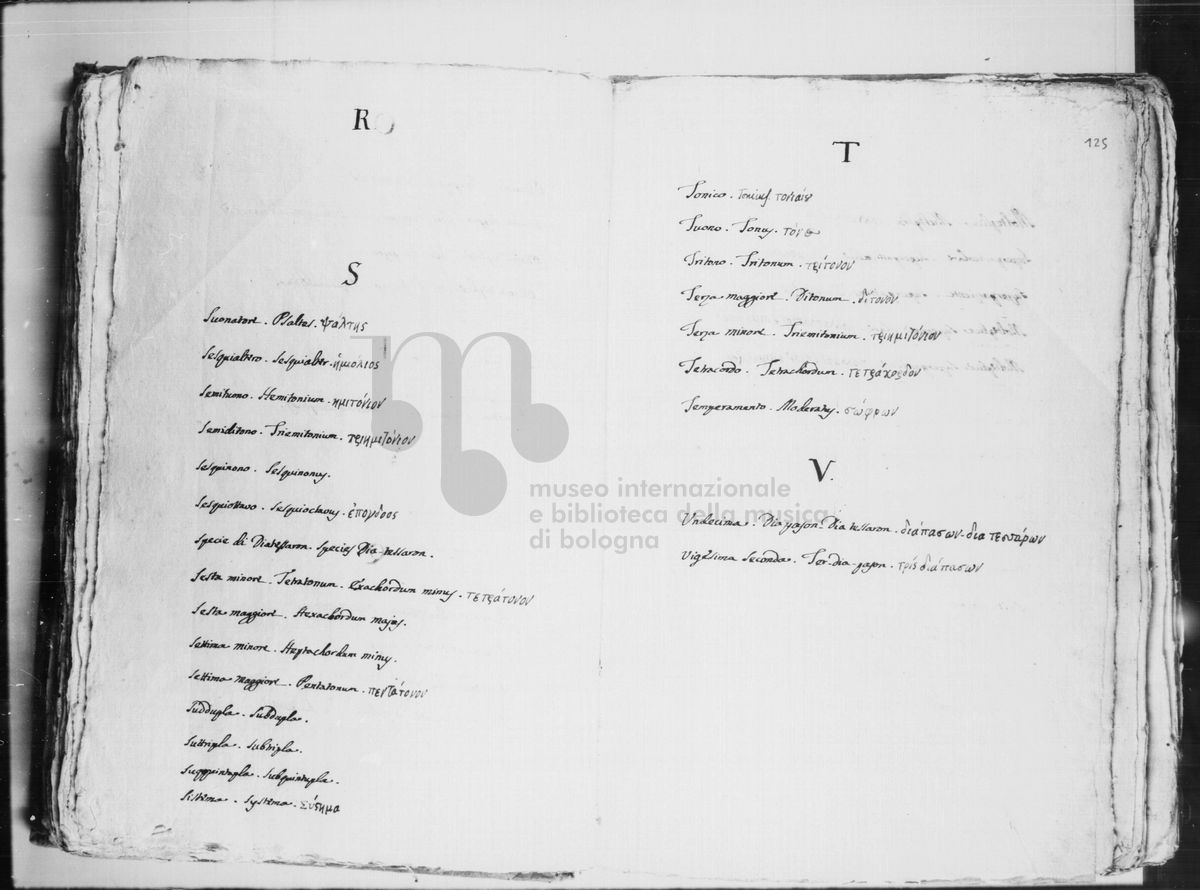 R
S
Suonatore. Psaltes. ψάλτης
Sesquialtero. Sesquialter. ἡμιόλιος
Semituono. Hemitonium. ἡμιτόνιον
Semiditono. Triemitonium. τριημιτόνιον
Sesquinono. Sesquinonus.
Sesquiottavo. Sesquioctavus. ἐπόγδοος
Specie di Diatessaron. Species Dia-tessaron.
Sesta minore. Tetratonum. Exachordum minus. τετράτονον
Sesta maggiore. Hexachordum majus.
Settima minore. Heptachordum minus.
Settima maggiore. Pentatonum. πεντάτονον
Suddupla. Subdupla.
Suttripla. Subtripla.
Suqquintupla. Subquintupla.
Sistema. Systema. Σύστημα
125
T
Tonico. τονιαίου
Tuono. Tonus. τόνος
Tritono. Tritonum. τρίτονον
Terza maggiore. Ditonum. δίτονον
Terza minore. Triemitonium. τριημιτόνιον
Tetracordo. Tetrachordum. τετράχορδον
Temperamento. Moderatus. σώφρων
V.
Undecima. Diapason. Dia tessaron. διάπασων-δια τεσσάρων
Vigesima seconda. Ter-dia-pason. τρίς διάπασων
museo internazionale
e biblioteca della musica
di bologna